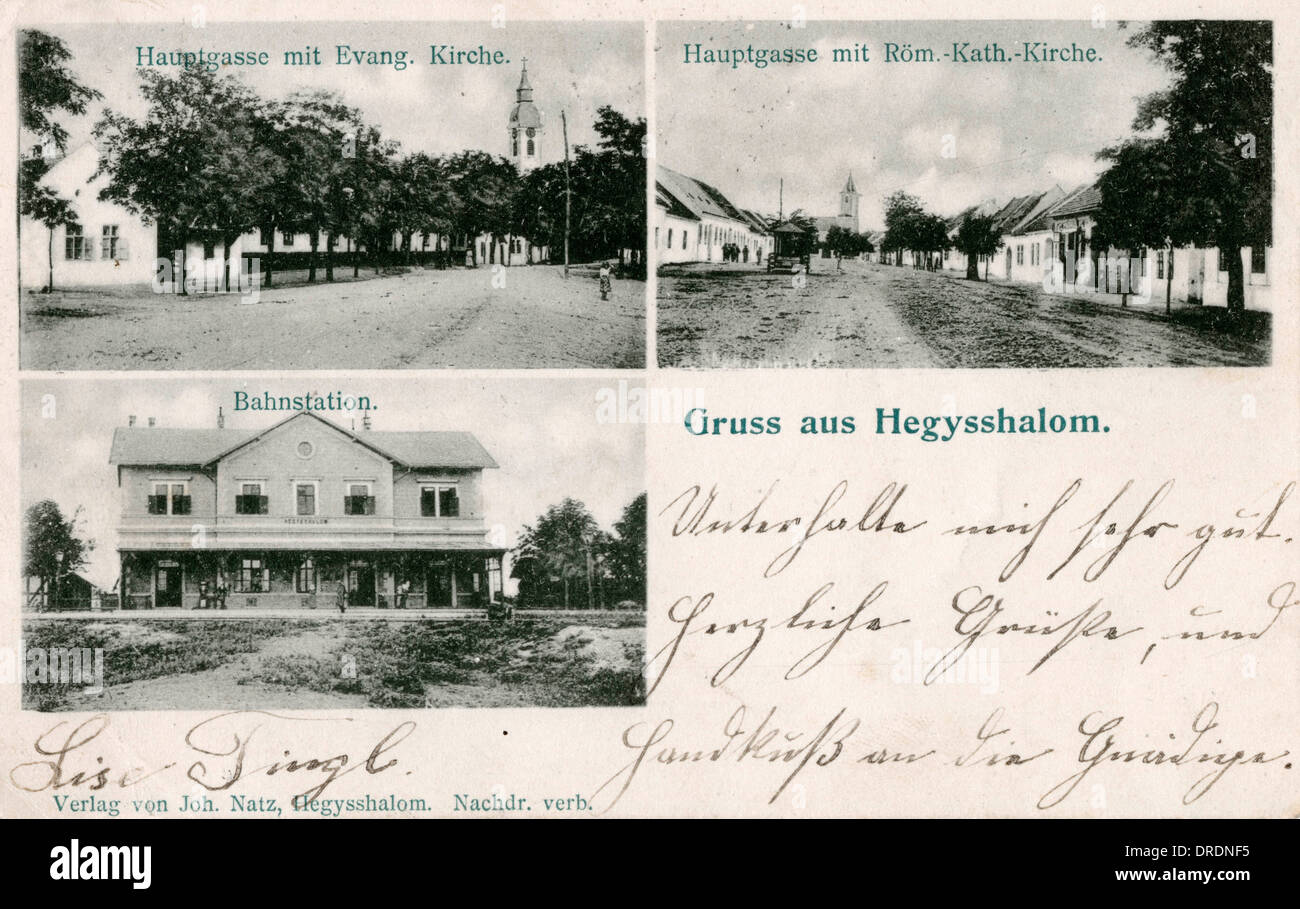 Hauptgasse mit Evang. Kirche.
Hauptgasse mit Röm.-Kath.-Kirche.
Bahnstation.
HEGYESHALOM
Gruss aus Hegysshalom.
Unterhalte mich sehr gut.
Herzliche Grüße, und
Handkuß an die Gnädige.
Lise
Verlag von Joh. Natz, Hegysshalom. Nachdr. verb.
alamy
Image ID: DRDNF5
www.alamy.com